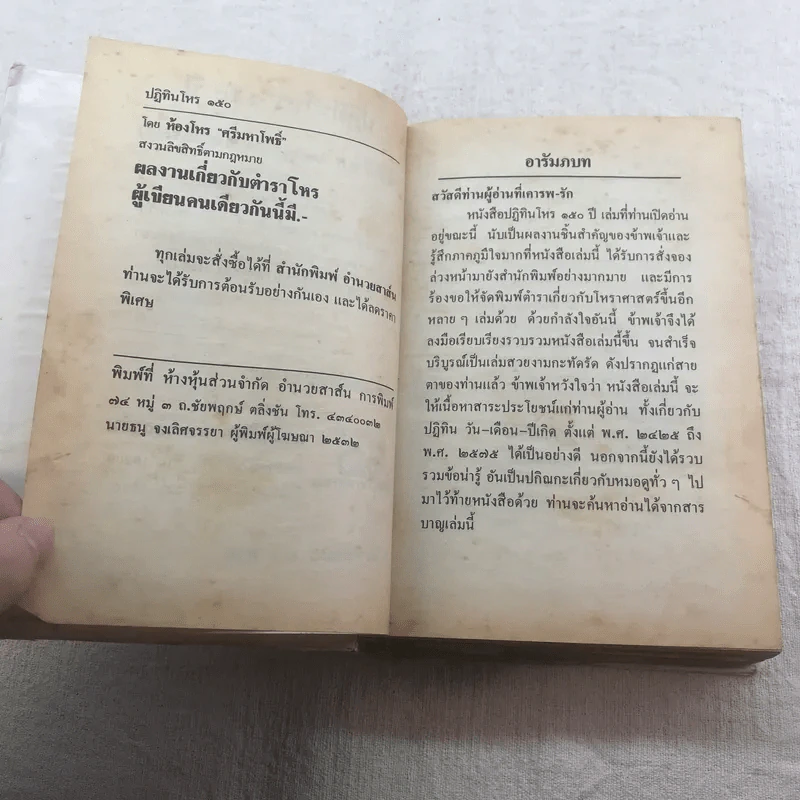 ปฏิทินโหร ๑๕๐
โดย ห้องโหร "ศรีมหาโพธิ์"
สงวนลิขสิทธิ์ตามกฎหมาย
ผลงานเกี่ยวกับตำราโหร
ผู้เขียนคนเดียวกันนี้มี.-
ทุกเล่มจะสั่งซื้อได้ที่ สำนักพิมพ์ อำนวยสาส์น
ท่านจะได้รับการต้อนรับอย่างกันเอง และได้ลดราคา
พิเศษ
พิมพ์ที่ ห้างหุ้นส่วนจำกัด อำนวยสาส์น การพิมพ์
๗๔ หมู่ ๓ ถ.ชัยพฤกษ์ ตลิ่งชัน โทร. ๔๓๔๐๐๓๒
นายธนู จงเลิศจรรยา ผู้พิมพ์ผู้โฆษณา ๒๕๓๒
อารัมภบท
สวัสดีท่านผู้อ่านที่เคารพ-รัก
หนังสือปฏิทินโหร ๑๕๐ ปี เล่มที่ท่านเปิดอ่าน
อยู่ขณะนี้ นับเป็นผลงานชิ้นสำคัญของข้าพเจ้าและ
รู้สึกภาคภูมิใจมากที่หนังสือเล่มนี้ ได้รับการสั่งจอง
ล่วงหน้ามายังสำนักพิมพ์อย่างมากมาย และมีการ
ร้องขอให้จัดพิมพ์ตำราเกี่ยวกับโหราศาสตร์ขึ้นอีก
หลาย ๆ เล่มด้วย ด้วยกำลังใจอันนี้ ข้าพเจ้าจึงได้
ลงมือเรียบเรียงรวบรวมหนังสือเล่มนี้ขึ้น จนสำเร็จ
บริบูรณ์เป็นเล่มสวยงามกะทัดรัด ดังปรากฏแก่สาย
ตาของท่านแล้ว ข้าพเจ้าหวังใจว่า หนังสือเล่มนี้ จะ
ให้เนื้อหาสาระประโยชน์แก่ท่านผู้อ่าน ทั้งเกี่ยวกับ
ปฏิทิน วัน-เดือน-ปีเกิด ตั้งแต่ พ.ศ. ๒๔๒๕ ถึง
พ.ศ. ๒๕๗๕ ได้เป็นอย่างดี นอกจากนี้ยังได้รวบ
รวมข้อน่ารู้ อันเป็นปกิณกะเกี่ยวกับหมอดูทั่ว ๆ ไป
มาไว้ท้ายหนังสือด้วย ท่านจะค้นหาอ่านได้จากสาร
บาญเล่มนี้